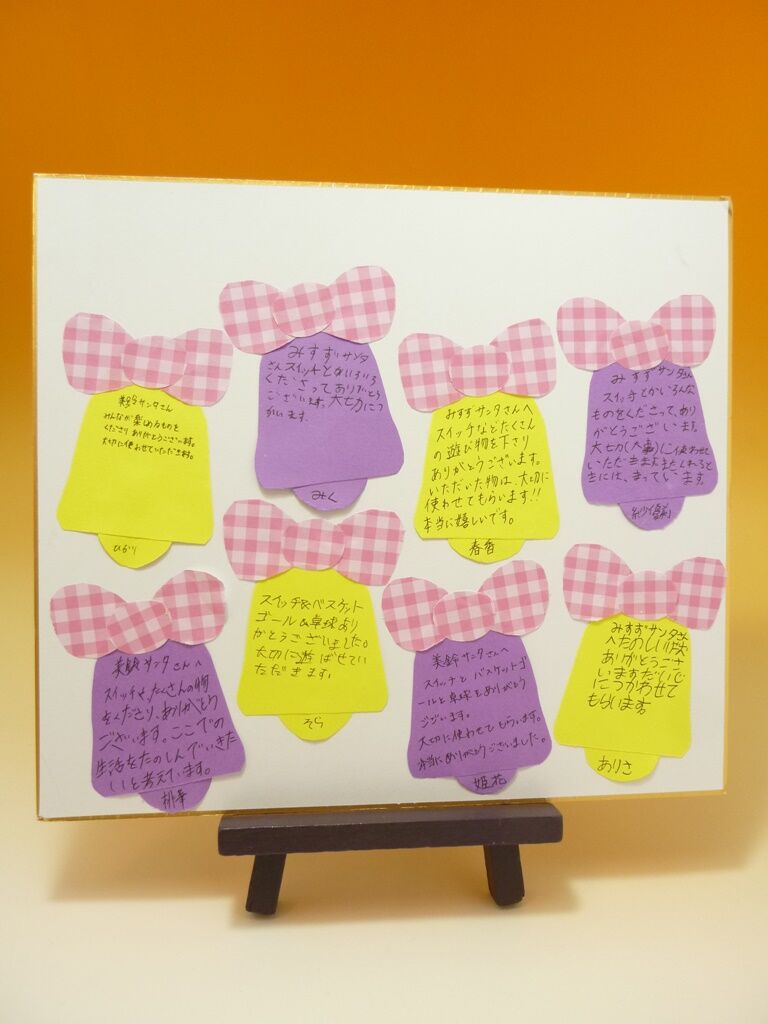 美鈴サンタさん
みんなが楽しめるものを
くださり ありがとうございます。
大切に使わせていただきます。
ひかり
みすずサンタ
さんスイッチとかいろいろ
くださってありがとう
ございます。大切につ
かいます。
みく
みすずサンタさんへ
スイッチなどたくさん
の遊び物を下さり
ありがとうございます。
いただいた物は、大切に
使わせてもらいます!!
本当に嬉しいです。
春香
みすずサンタさん
スイッチとかいろんな
ものをくださって、あり
がとうございます。
大切(大事)に使わせて
いただきます。またくれると
きには、まっています。
美鈴サンタさんへ
スイッチや、たくさんの物
をくださり、ありがとう
ございます。ここでの
生活をたのしんでいきた
いと考えています。
スイッチ&バスケット
ゴール&卓球あり
がとうございました。
大切に遊ばせてい
ただきます。
そら
美鈴サンタさんへ
スイッチとバスケットゴ
ールと卓球をありがとう
ございます。
大切に使わせてもらいます。
本当にありがとうございました。
姫花
みすずサンタさん
へたのしい
ありがとうござ
いますだいじ
につかわせて
もらいます。
ありさ